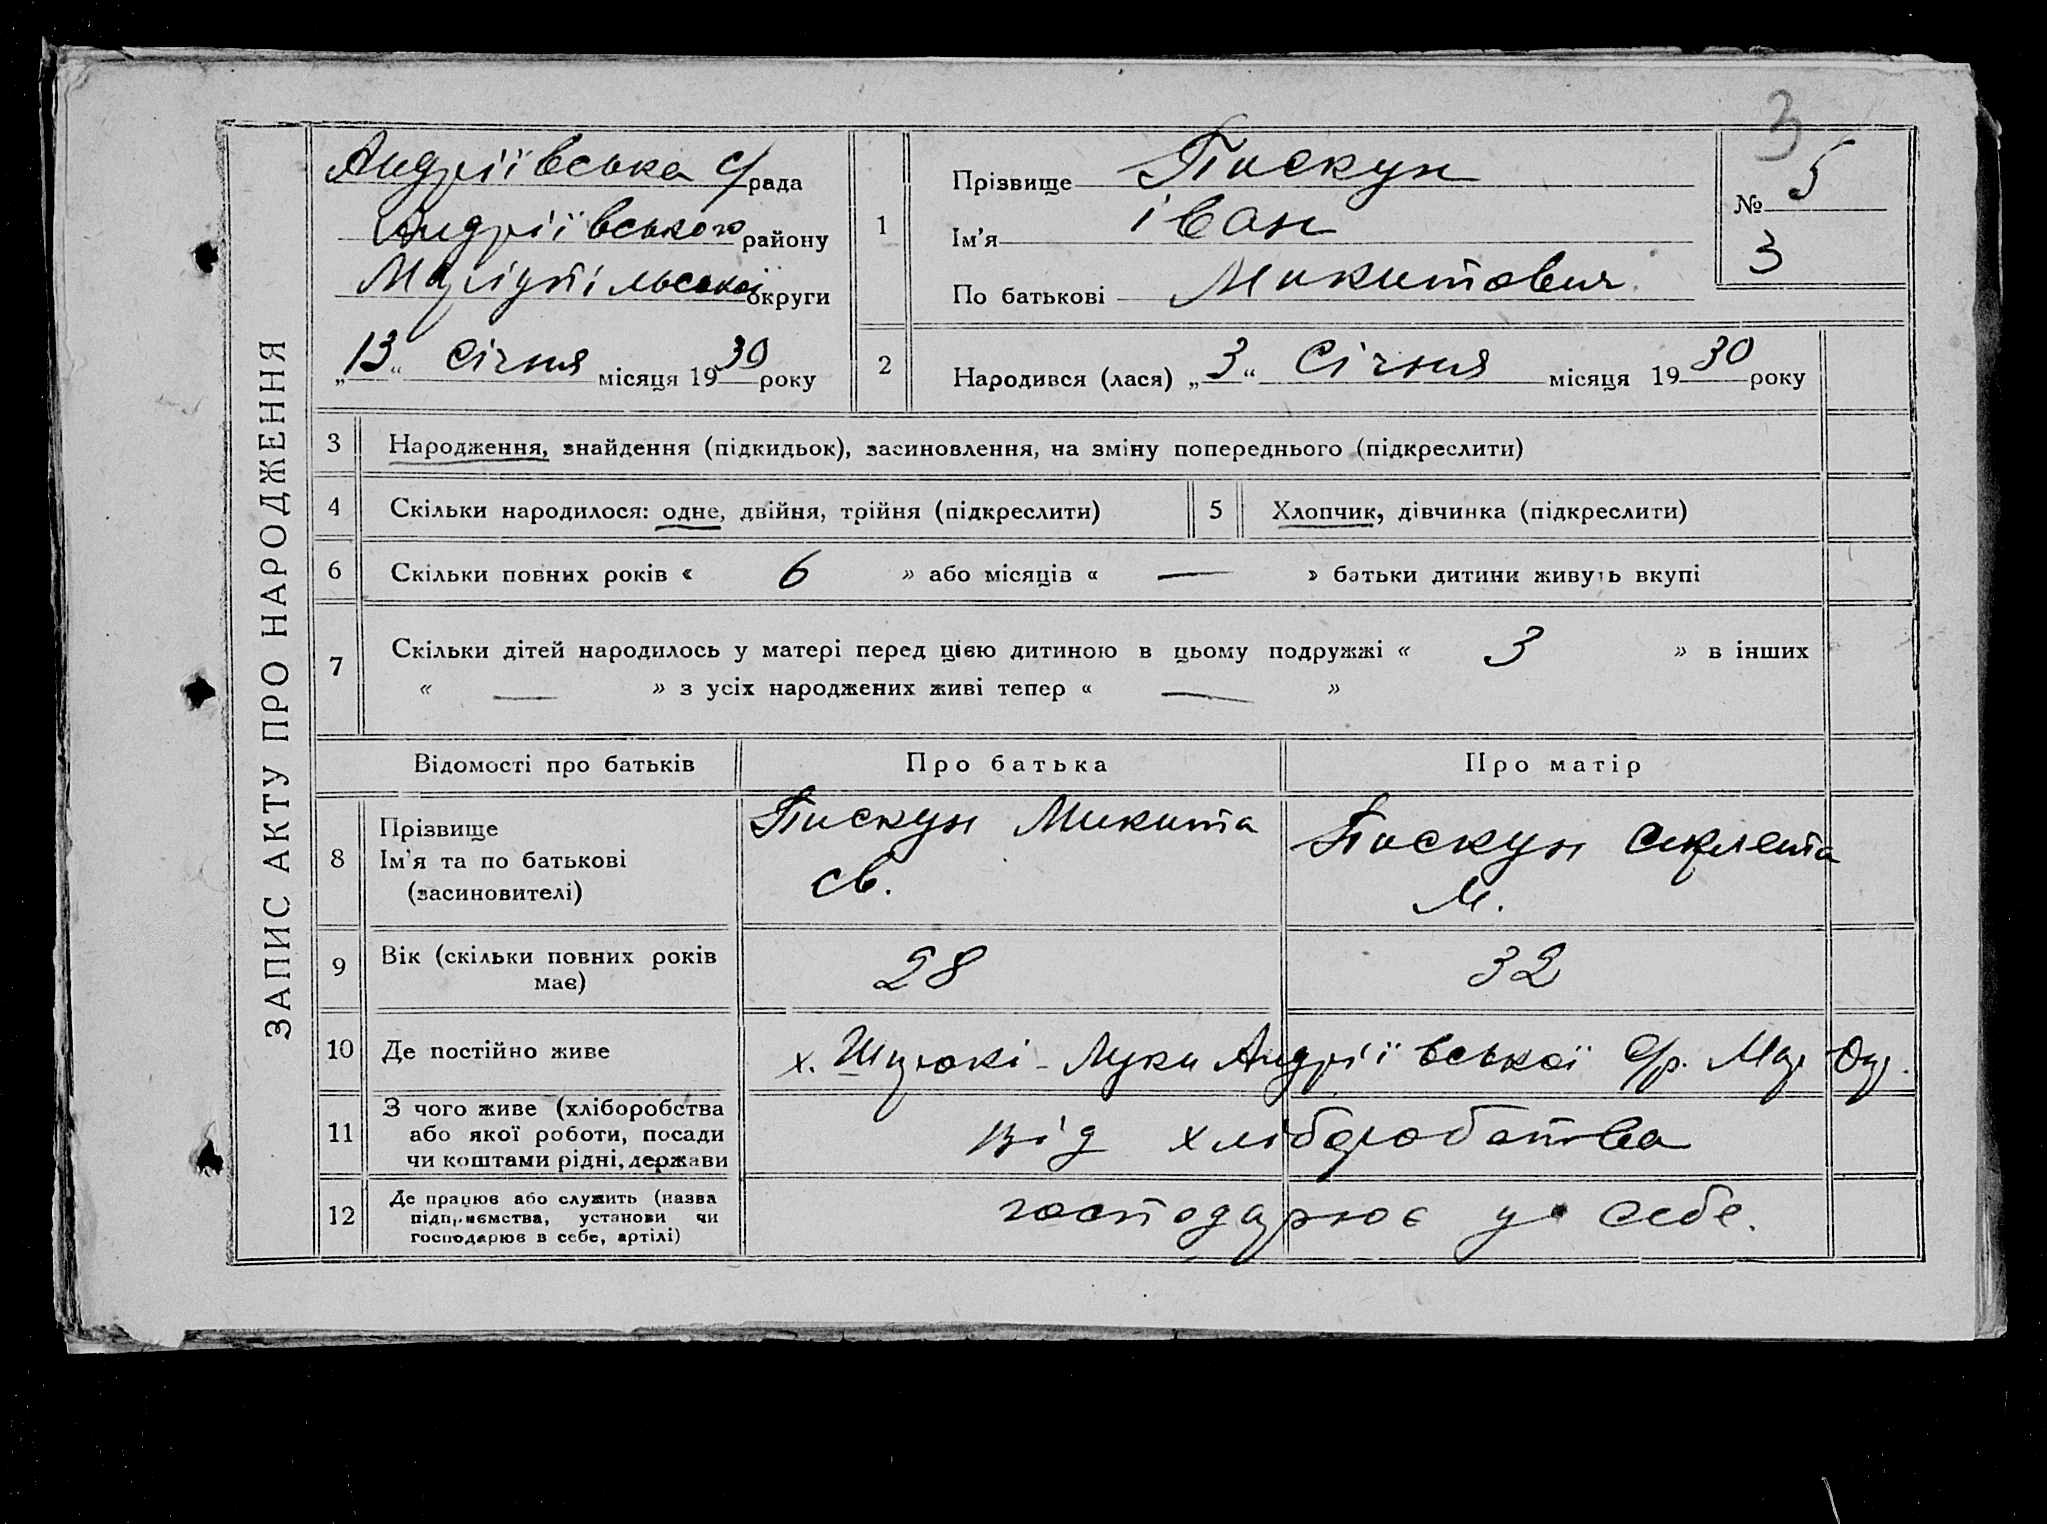 3
ЗАПИС АКТУ ПРО НАРОДЖЕННЯ
Андріївська с/рада
Андріївського району
Маріупільської округи
„13“ Січня місяця 1930 року
1
Прізвище Пискун
Ім'я Іван
По батькові Микитович
№ 5
3
2
Народився (лася) „3“ Січня місяця 1930 року
3 Народження, знайдення (підкидьок), засиновлення, на зміну попереднього (підкреслити)
4 Скільки народилося: одне, двійня, трійня (підкреслити) 5 Хлопчик, дівчинка (підкреслити)
6 Скільки повних років « 6 » або місяців « — » батьки дитини живуть вкупі
7 Скільки дітей народилось у матері перед цією дитиною в цьому подружжі « 3 » в інших
« — » з усіх народжених живі тепер « — »
Відомості про батьків Про батька Про матір
8 Прізвище
Ім'я та по батькові
(засиновителі)
Пискун Микита
Єв.
Пискун
М.
9 Вік (скільки повних років
має)
28 32
10 Де постійно живе х. Луки Андріївської с/р. Мар. Окр.
11 З чого живе (хліборобства
або якої роботи, посади
чи коштами рідні, держави
від хліборобства
12 Де працює або служить (назва
підприємства, установи чи
господарює в себе, артілі)
господарює у себе.